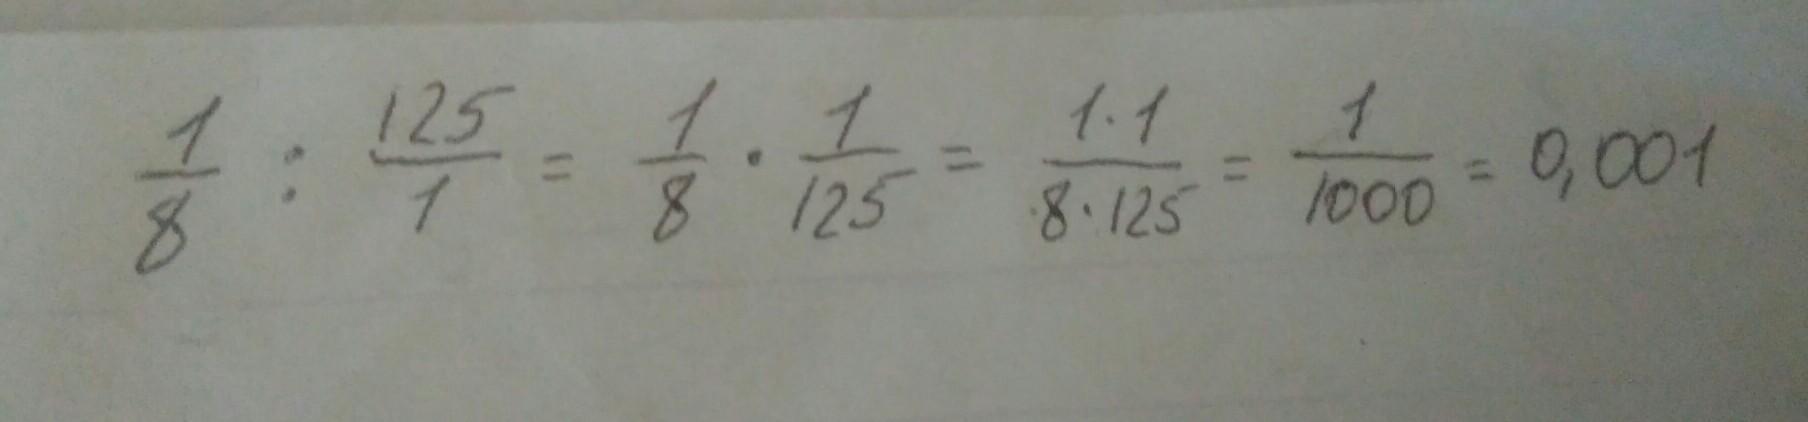 1/8 : 125/1 = 1/8 · 1/125 = 1·1/8·125 = 1/1000 = 0,001